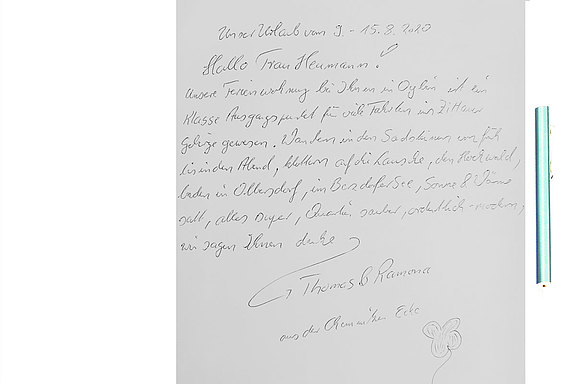 Unser Urlaub vom 9. - 15.8.2020
Hallo Frau Heumann!
unsere Ferienwohnung bei Ihnen in Oybin ist ein
klasse Ausgangspunkt für viele Fahrten ins Zittauer
Gebirge gewesen. Wandern in den Sandsteinen von früh
bis in den Abend, klettern auf die Lausche, den Hochwald,
baden in Olbersdorf, im Berzdorfer See, Sonne & Wärme
satt, alles super, Quartier sauber, ordentlich - modern,
wir sagen Ihnen danke
Thomas & Ramona
aus der Chemnitzer Ecke